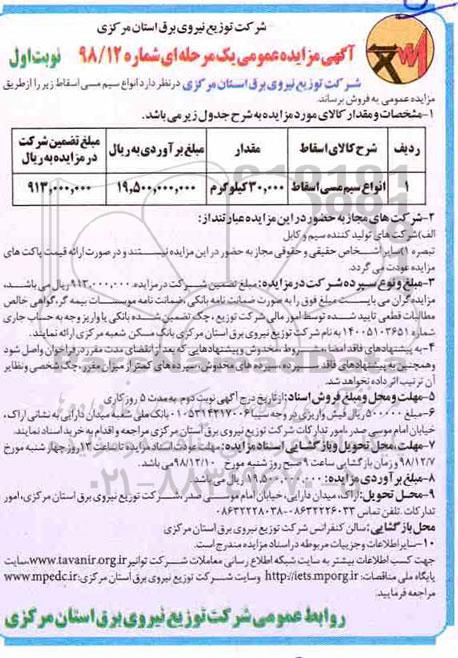 شرکت توزیع نیروی برق استان مرکزی
آگهی مزایده عمومی یک مرحله ای شماره ۹۸/۱۲ نوبت اول
شرکت توزیع نیروی برق استان مرکزی در نظر دارد انواع سیم مسی اسقاط زیر را از طریق
مزایده عمومی به فروش برساند.
۱-مشخصات و مقدار کالای مورد مزایده به شرح جدول زیر می باشد.
ردیف شرح کالای اسقاط مقدار مبلغ برآوردی به ریال مبلغ تضمین شرکت در مزایده به ریال
۱ انواع سیم مسی اسقاط ۳۰,۰۰۰ کیلوگرم ۱۹,۵۰۰,۰۰۰,۰۰۰ ۹۱۳,۰۰۰,۰۰۰
۲-شرکت های مجاز به حضور در این مزایده عبارتند از:
الف)شرکت های تولید کننده سیم و کابل
تبصره ۱)سایر اشخاص حقیقی و حقوقی مجاز به حضور در این مزایده نیستند و در صورت ارائه قیمت پاکت های
مزایده عودت می گردد.
۳-مبلغ و نوع سپرده شرکت در مزایده: مبلغ تضمین شرکت در مزایده ۹۱۳,۰۰۰,۰۰۰ ریال می باشد،
مزایده گران می بایست مبلغ فوق را به صورت ضمانت نامه بانکی، ضمانت نامه موسسات بیمه گر، گواهی خالص
مطالبات قطعی تایید شده توسط امور مالی شرکت توزیع، چک تضمین شده بانکی یا واریز وجه به حساب جاری
شماره ۱۴۰۰۵۱۰۳۶۵۱ به نام شرکت توزیع نیروی برق استان مرکزی بانک مسکن شعبه مرکزی ارائه نمایند.
۴-به پیشنهادهای فاقد امضاء، مشروط، مخدوش و پیشنهادهایی که بعد از انقضای مدت مقرر در فراخوان واصل شود
وهمچنین به پیشنهادهای فاقد سپرده، سپرده های مخدوش، سپرده های کمتر از میزان مقرر، چک شخصی و نظایر
آن ترتیب اثر داده نخواهد شد.
۵-مهلت و محل و مبلغ فروش اسناد: از تاریخ درج آگهی نوبت دوم به مدت ۵ روز کاری
۶-مبلغ ۵۰۰,۰۰۰ ریال فیش واریزی در وجه سیبا ۰۱۰۵۳۱۴۲۱۷۰۰۶ بانک ملی شعبه میدان دارایی به نشانی اراک،
خیابان امام موسی صدر، امور تدارکات شرکت توزیع نیروی برق استان مرکزی مراجعه و اقدام به خرید اسناد نمایند.
۷-مهلت، محل تحویل و بازگشایی اسناد مزایده: مهلت عودت اسناد مزایده تا ساعت ۱۳ روز چهارشنبه مورخ
۹۸/۱۲/۷ و زمان بازگشایی ساعت ۹ صبح روز شنبه مورخ ۹۸/۱۲/۱۰ می باشد.
۸-مبلغ برآوردی مزایده: ۱۹,۵۰۰,۰۰۰,۰۰۰ ریال می باشد.
۹-محل تحویل: اراک، میدان دارایی، خیابان امام موسی صدر، شرکت توزیع نیروی برق استان مرکزی، امور
تدارکات. تلفن تماس ۰۸۶۳۲۲۲۶۰۳۳-۰۸۶۳۲۲۲۸۰۳۸
محل بازگشایی: سالن کنفرانس شرکت توزیع نیروی برق استان مرکزی
۱۰-سایر اطلاعات و جزییات مربوطه در اسناد مزایده مندرج است.
جهت کسب اطلاعات بیشتر به سایت شبکه اطلاع رسانی معاملات شرکت توانیر www.tavanir.org.ir، سایت
پایگاه ملی مناقصات: http://iets.mporg.ir وسایت شرکت توزیع نیروی برق استان مرکزی: www.mpedc.ir
مراجعه فرمایید.
روابط عمومی شرکت توزیع نیروی برق استان مرکزی